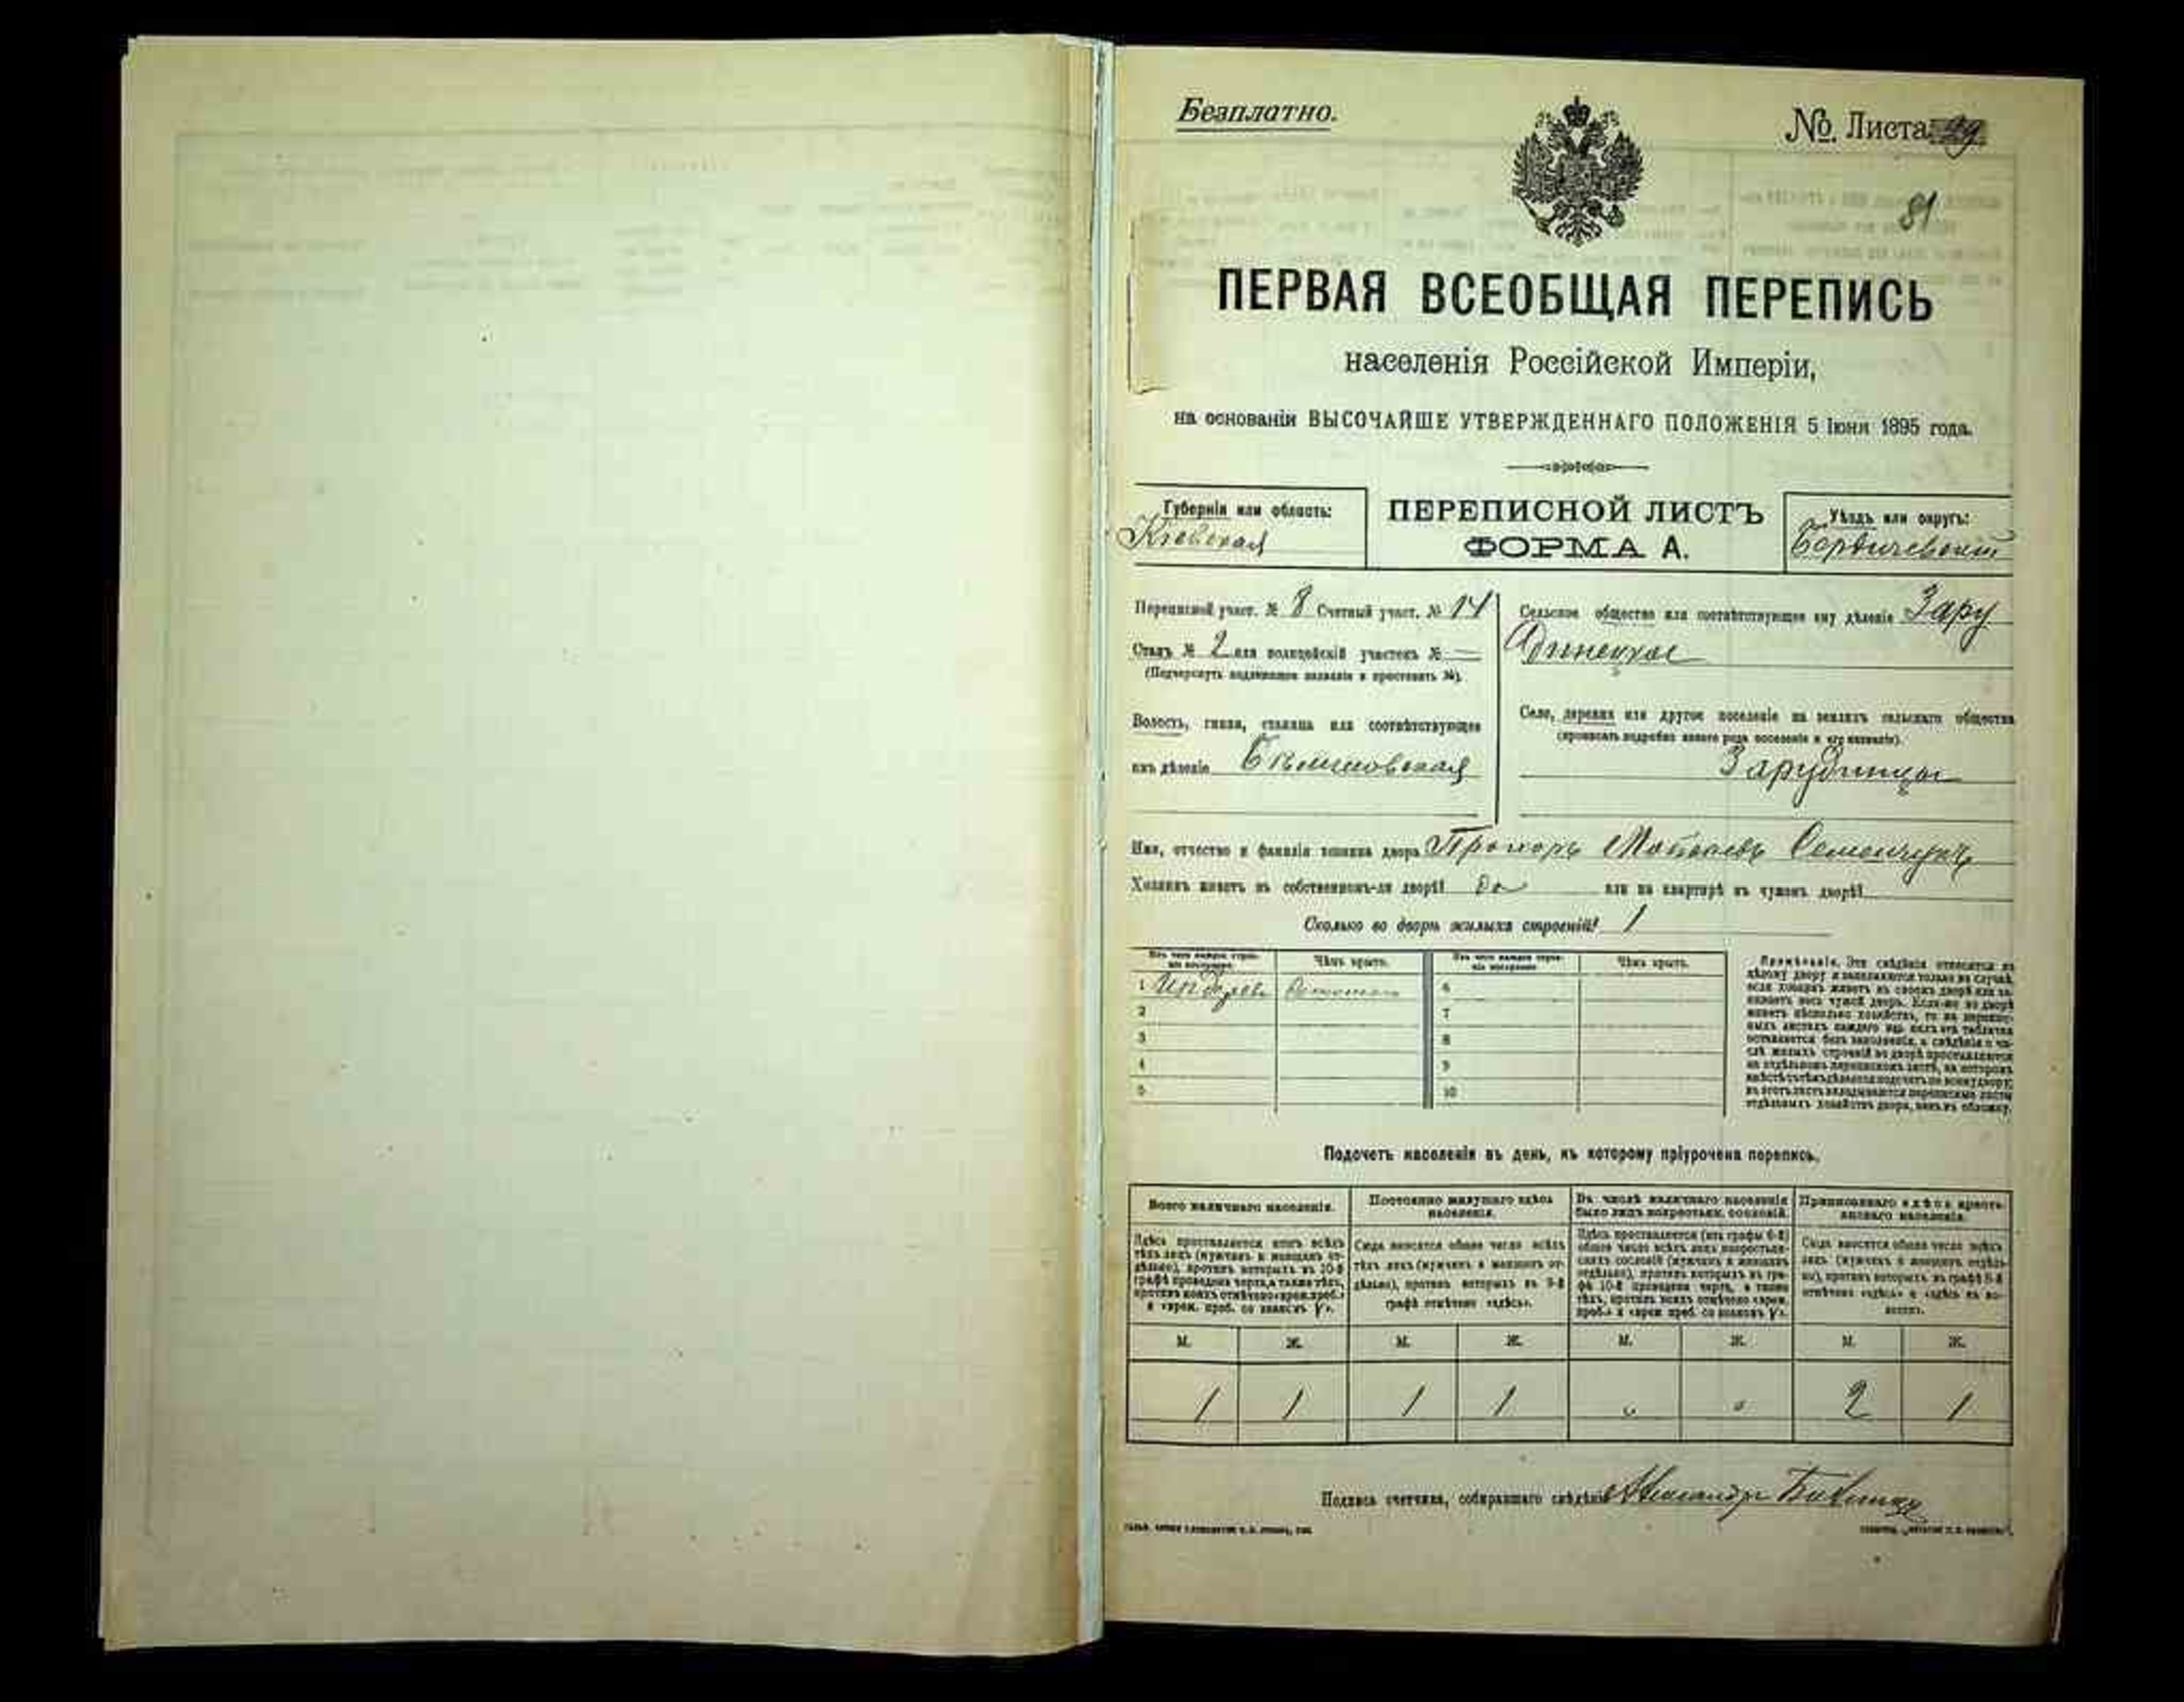 Безплатно.
№. Листа 29
81
ПЕРВАЯ ВСЕОБЩАЯ ПЕРЕПИСЬ
населенія Россійской Имперіи,
на основаніи ВЫСОЧАЙШЕ УТВЕРЖДЕННАГО ПОЛОЖЕНІЯ 5 Іюня 1895 года.
Губернія или область:
Кіевская
ПЕРЕПИСНОЙ ЛИСТЪ
ФОРМА А.
Уѣздъ или округъ:
Бердичевскій
Переписной участ. № 8 Счетный участ. № 14
Станъ № 2 или полицейскій участокъ № —
(Подчеркнуть надлежащее названіе и проставить №).
Волость, гмина, станица или соотвѣтствующее
имъ дѣленіе
Сельское общество или соотвѣтствующее ему дѣленіе Зару
динецкое
Село, деревня или другое поселеніе на земляхъ сельскаго общества
(прописать подробно какого рода поселеніе и его названіе).
Зарудинцы
Имя, отчество и фамилія хозяина двора Прокоръ Матвѣевъ Семенчукъ
Хозяинъ живетъ въ собственномъ-ли дворѣ? да или на квартирѣ въ чужомъ дворѣ?
Сколько во дворѣ жилыхъ строеній? 1
Изъ чего каждое строеніе построено.
Чѣмъ крыто.
Изъ чего каждое строеніе построено.
Чѣмъ крыто.
1 6
2 7
3 8
4 9
5 10
Примѣчаніе. Эти свѣдѣнія относятся къ
цѣлому двору и заполняются только въ случаѣ,
если хозяинъ живетъ въ своемъ дворѣ или за-
нимаетъ весь чужой дворъ. Если-же во дворѣ
живетъ нѣсколько хозяйствъ, то на перепис-
ныхъ листахъ каждаго изъ нихъ эта табличка
оставляется безъ заполненія, а свѣдѣнія о чи-
слѣ жилыхъ строеній во дворѣ проставляются
на отдѣльномъ переписномъ листѣ, на которомъ
вмѣстѣ съ тѣмъ дѣлается подсчетъ по всему двору;
въ этотъ листъ вкладываются переписные листы
отдѣльныхъ хозяйствъ двора, какъ въ обложку.
Подсчетъ населенія въ день, къ которому пріурочена перепись.
Всего наличнаго населенія.
Здѣсь проставляется итогъ всѣхъ
тѣхъ лицъ (мужчинъ и женщинъ от-
дѣльно), противъ которыхъ въ 10-й
графѣ проведена черта, а также тѣхъ,
противъ коихъ отмѣчено «врем. преб.»
и «врем. преб. со знакомъ V».
Постоянно живущаго здѣсь
населенія.
Сюда вносится общее число всѣхъ
тѣхъ лицъ (мужчинъ и женщинъ от-
дѣльно), противъ которыхъ въ 9-й
графѣ отмѣчено «здѣсь».
Въ числѣ наличнаго населенія
было лицъ некрестьян. сословій.
Здѣсь проставляется (изъ графы 6-й)
общее число всѣхъ лицъ некрестьян-
скихъ сословій (мужчинъ и женщинъ
отдѣльно), противъ которыхъ въ гра-
фѣ 10-й проведена черта, а также
тѣхъ, противъ коихъ отмѣчено «врем.
преб.» и «врем. преб. со знакомъ V».
Приписаннаго здѣсь кресть-
янскаго населенія.
Сюда вносится общее число всѣхъ
лицъ (мужчинъ и женщинъ отдѣль-
но), противъ которыхъ въ графѣ 8-й
отмѣчено «здѣсь» и «здѣсь въ во-
лости».
М. Ж. М. Ж. М. Ж. М. Ж.
1 1 1 1 „ „ 2 1
Подпись счетчика, собиравшаго свѣдѣнія Александръ